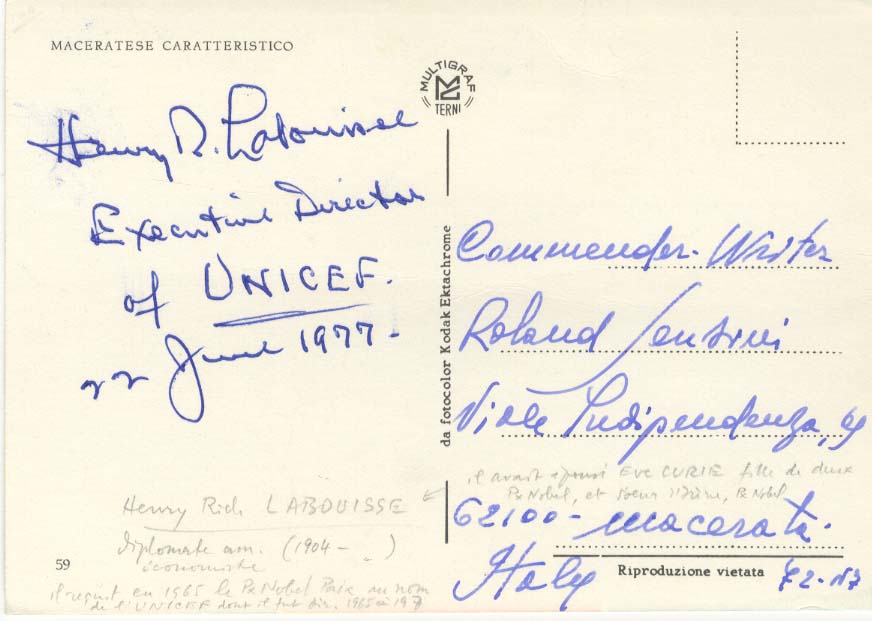 MACERATESE CARATTERISTICO
MULTIGRAF
TERNI
Henry R. Labouisse
Executive Director
of UNICEF.
22 June 1977-
da fotocolor Kodak Ektachrome
Commender. Writer
Roland Sensini
Viale Indipendenza,
62100- Macerata.
Italy
il avait épousé EVE CURIE fille de deux
Px Nobel, et soeur d'Irène, Px Nobel
Henry Rich LABOUISSE
diplomate am. (1904 - )
économiste
il reçut en 1965 le Px Nobel Paix au nom
de l'UNICEF dont il fut dir. 1965 à
59
Riproduzione vietata